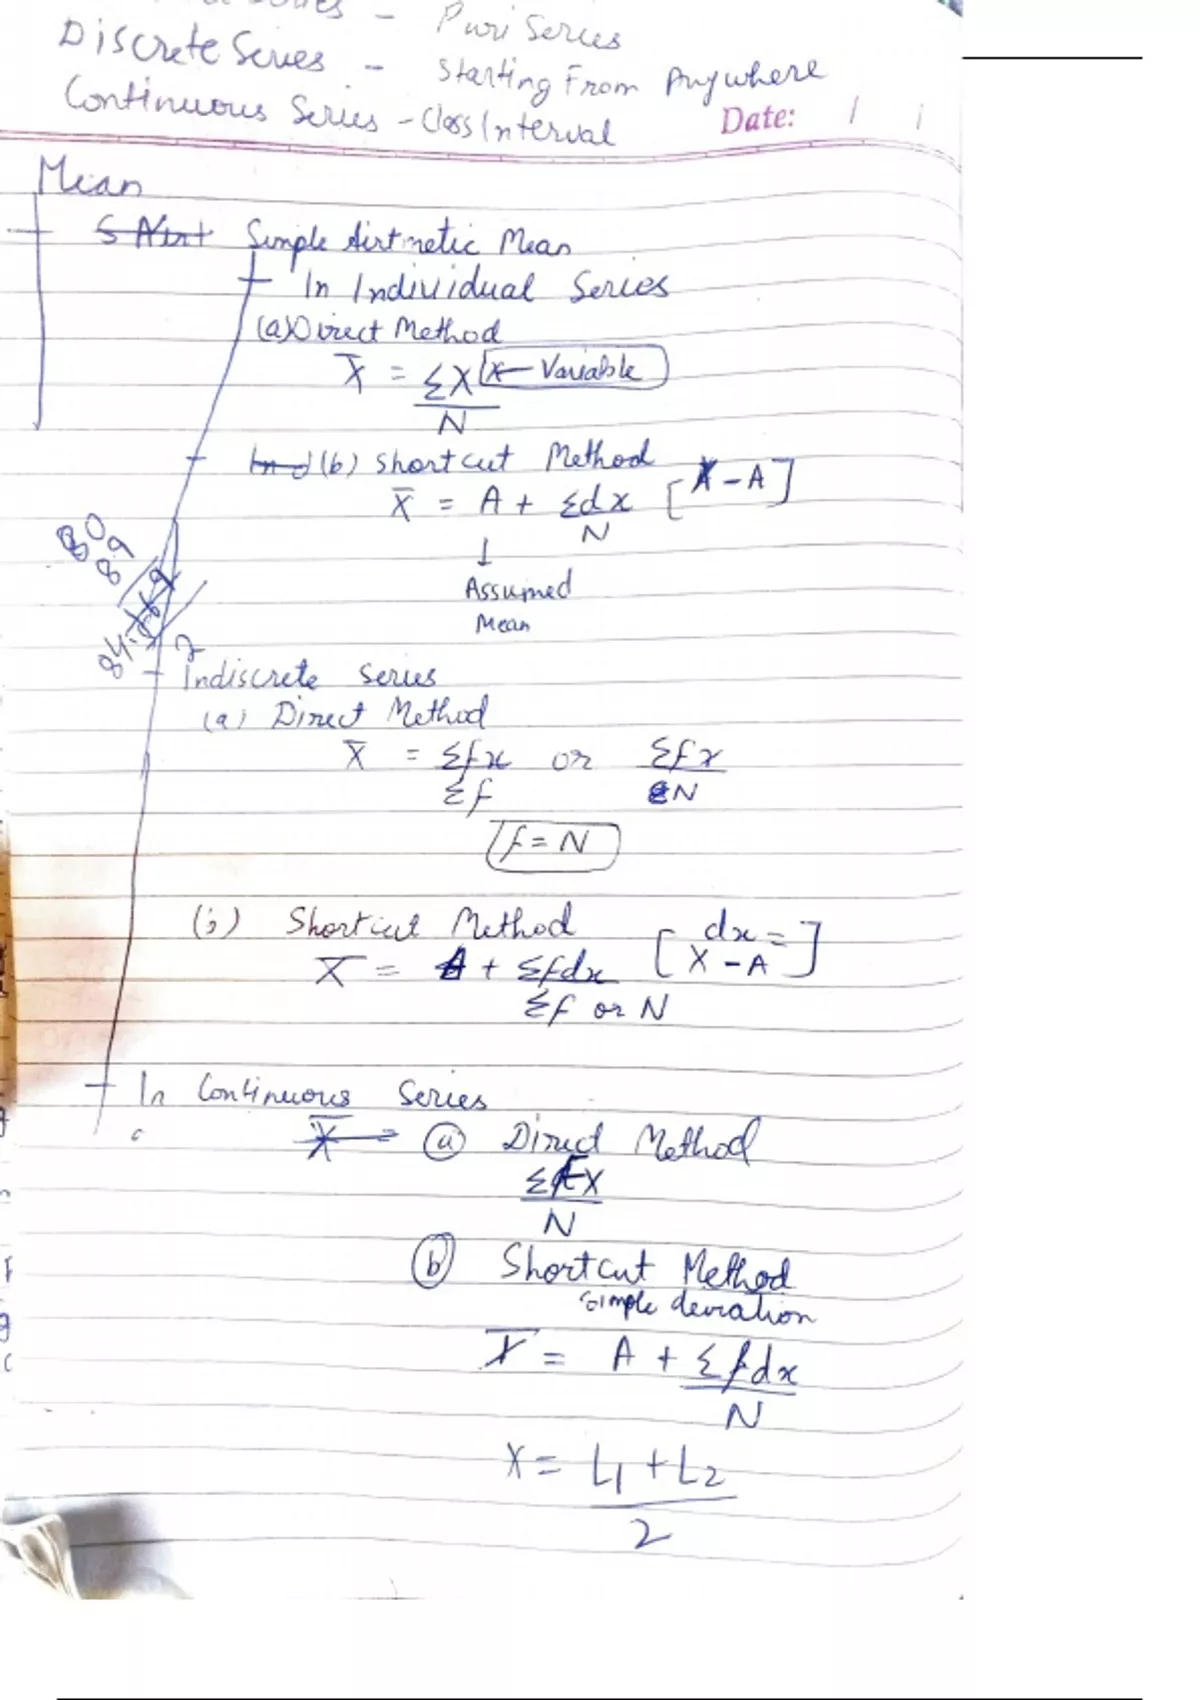 - Puri Series
Discrete Series - Starting From Anywhere
Continuous Series - Class Interval Date: / /
Mean
Simple Airtmetic Mean
In Individual Series
(a) Direct Method
X̅ = ΣX/N [x - Variable]
(b) Shortcut Method
X̅ = A + Σdx/N [X - A]
↓
Assumed
Mean
80
89
Indiscrete Series
(a) Direct Method
X̅ = Σfx/Σf or Σfx/N
f = N
(b) Shortcut Method
X̅ = A + Σfdx/Σf or N [dx = X - A]
In Continuous Series
(a) Direct Method
ΣFX/N
(b) Shortcut Method
Simple deviation
X̅ = A + Σfdx/N
X = L1 + L2/2